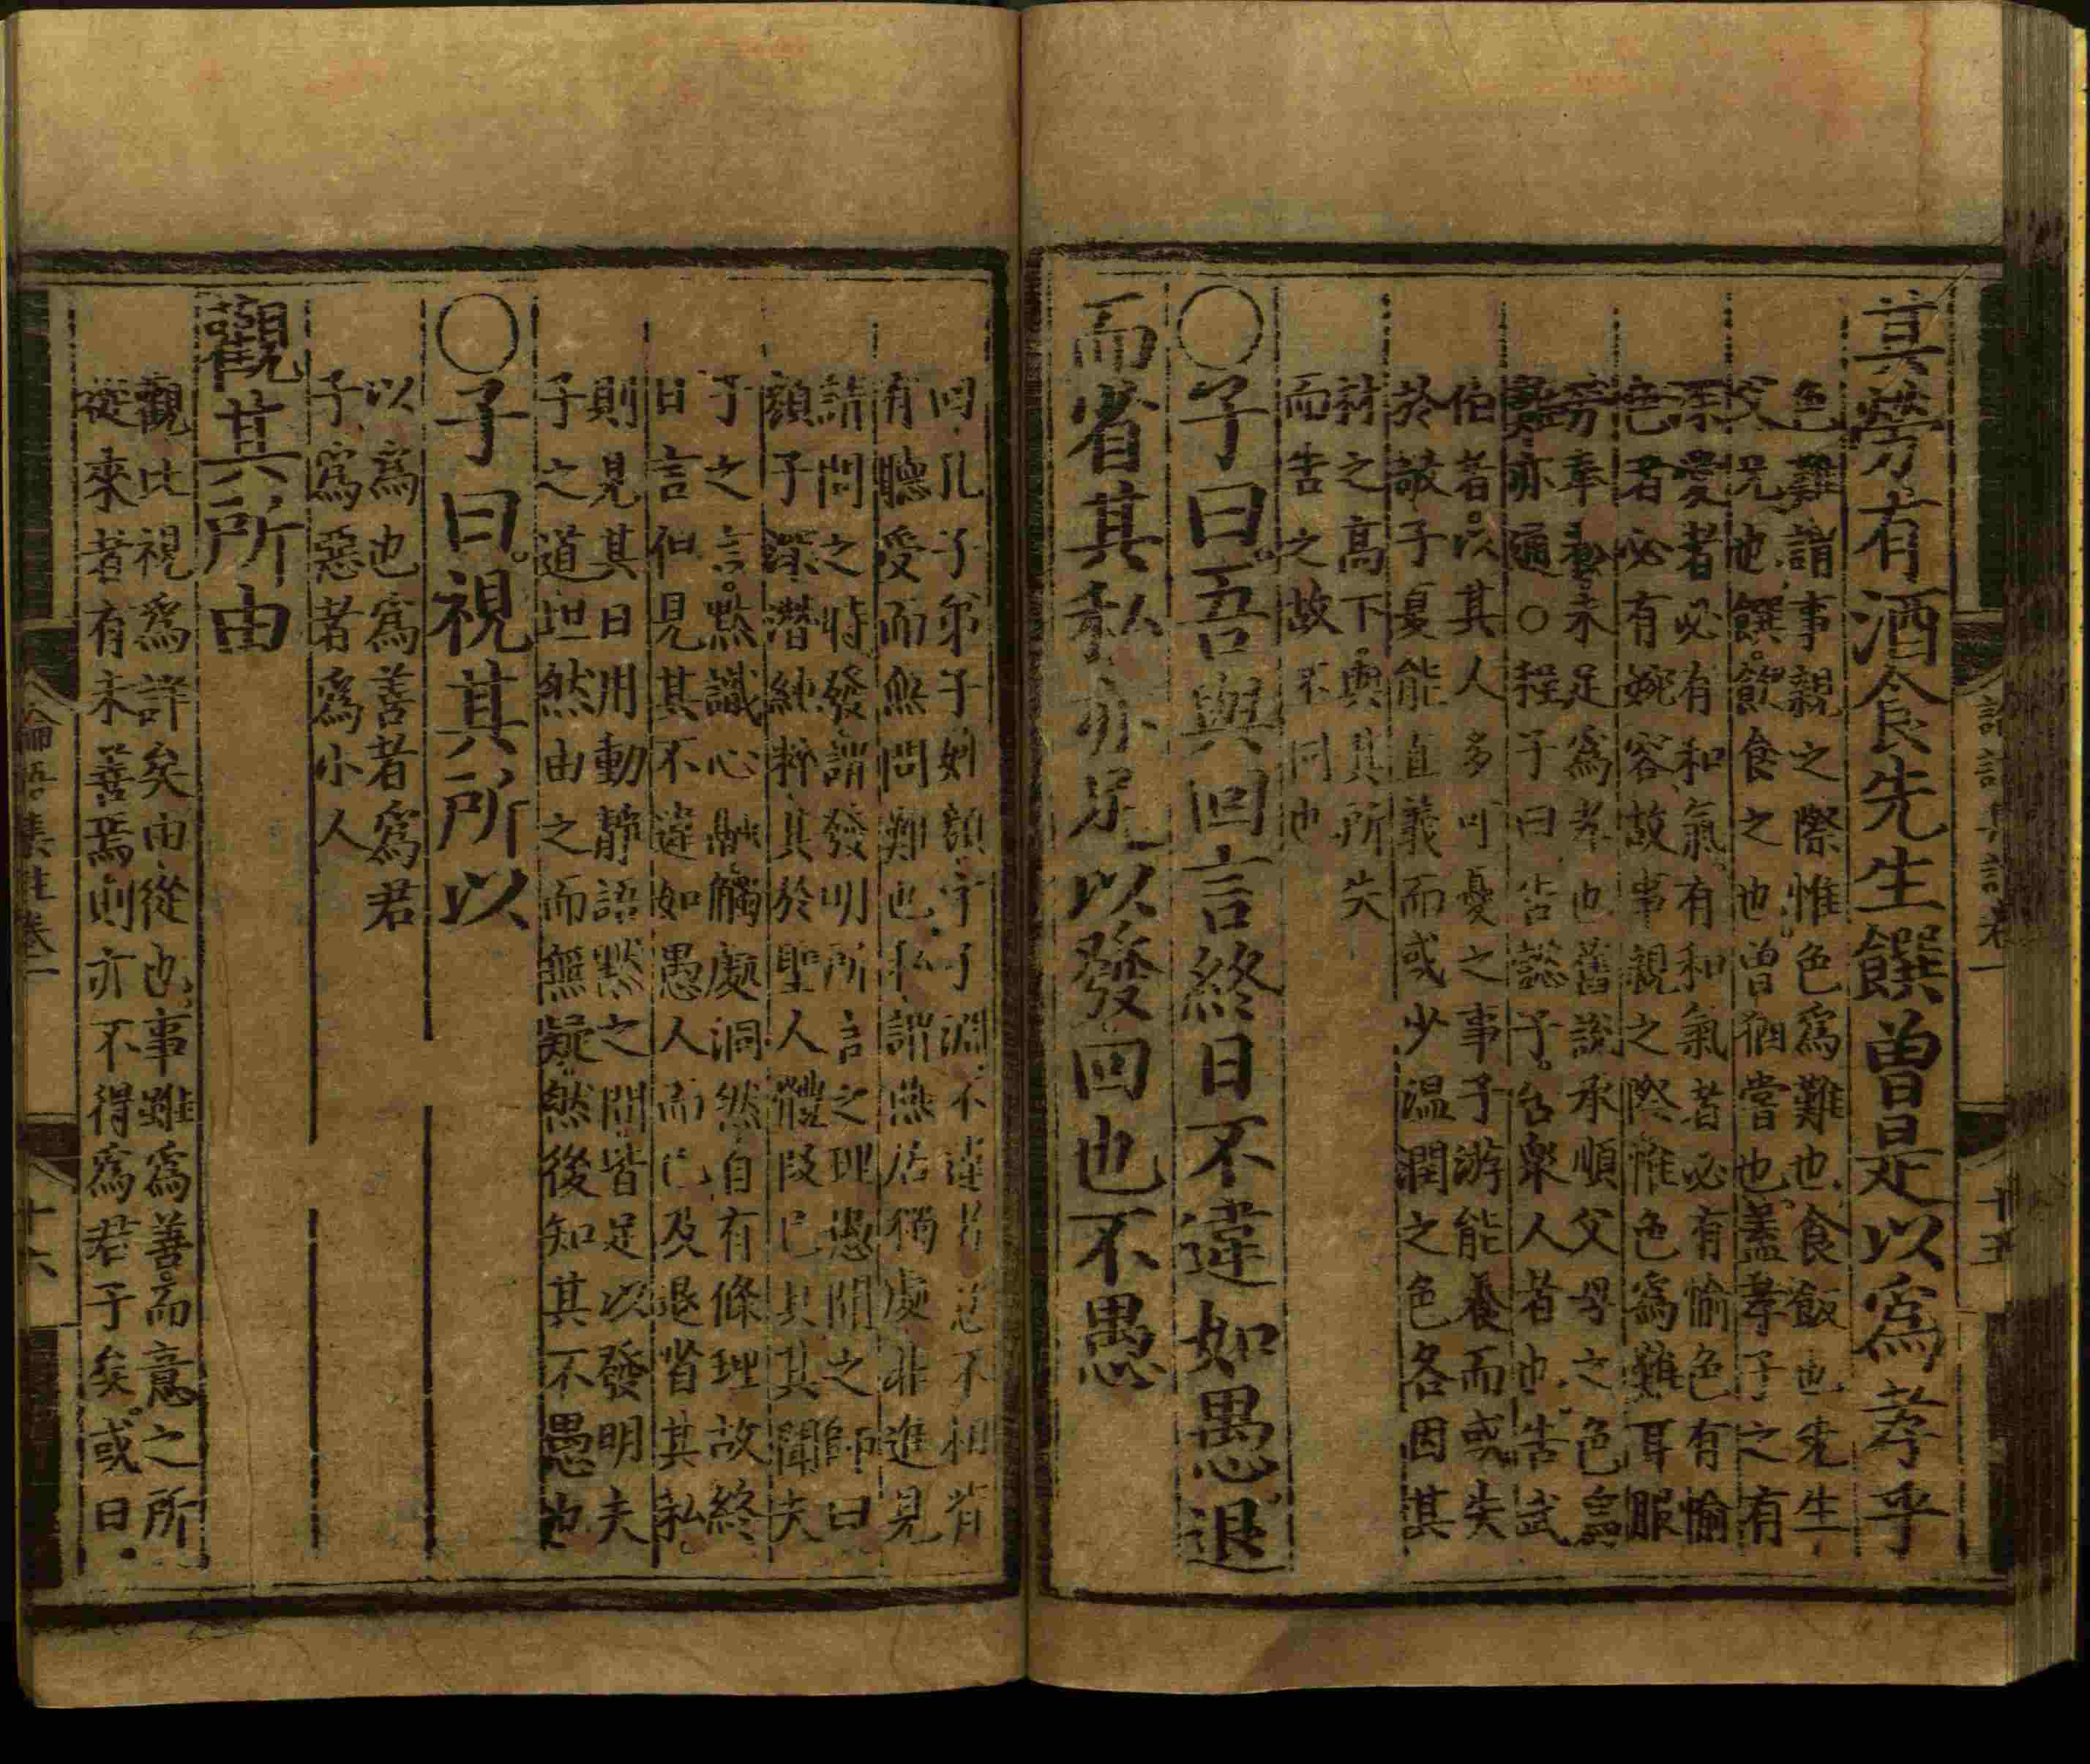 其勞有酒食先生饌曾是以爲孝乎
色難謂事親之際惟色爲難也食飯也先生
父兄也饌飲食之也曾猶嘗也蓋孝子之有
深愛者必有和氣有和氣者必有愉色有愉
色者必有婉容故事親之際惟色爲難耳服
勞奉養未足爲孝也舊說承順父母之色爲
難亦通○程子曰告懿子告衆人者也告武
伯者以其人多可憂之事子游能養而或失
於敬子夏能直義而或少温潤之色各因其
材之高下與其所失
而告之故不同也
○子曰吾與回言終日不違如愚退
而省其私亦足以發回也不愚
回孔子弟子姓顏字子淵不違者意不相背
有聽受而無問難也私謂燕居獨處非進見
請問之時發謂發明所言之理愚聞之師曰
顏子深潛純粹其於聖人體段已具其聞夫
子之言默識心融觸處洞然自有條理故終
日言但見其不違如愚人而已及退省其私
則見其日用動靜語默之間皆足以發明夫
子之道坦然由之而無疑然後知其不愚也
○子曰視其所以
以爲也爲善者爲君
子爲惡者爲小人
觀其所由
觀比視爲詳矣由從也事雖爲善而意之所
從來者有未善焉則亦不得爲君子矣或曰
論語集註卷一
十六